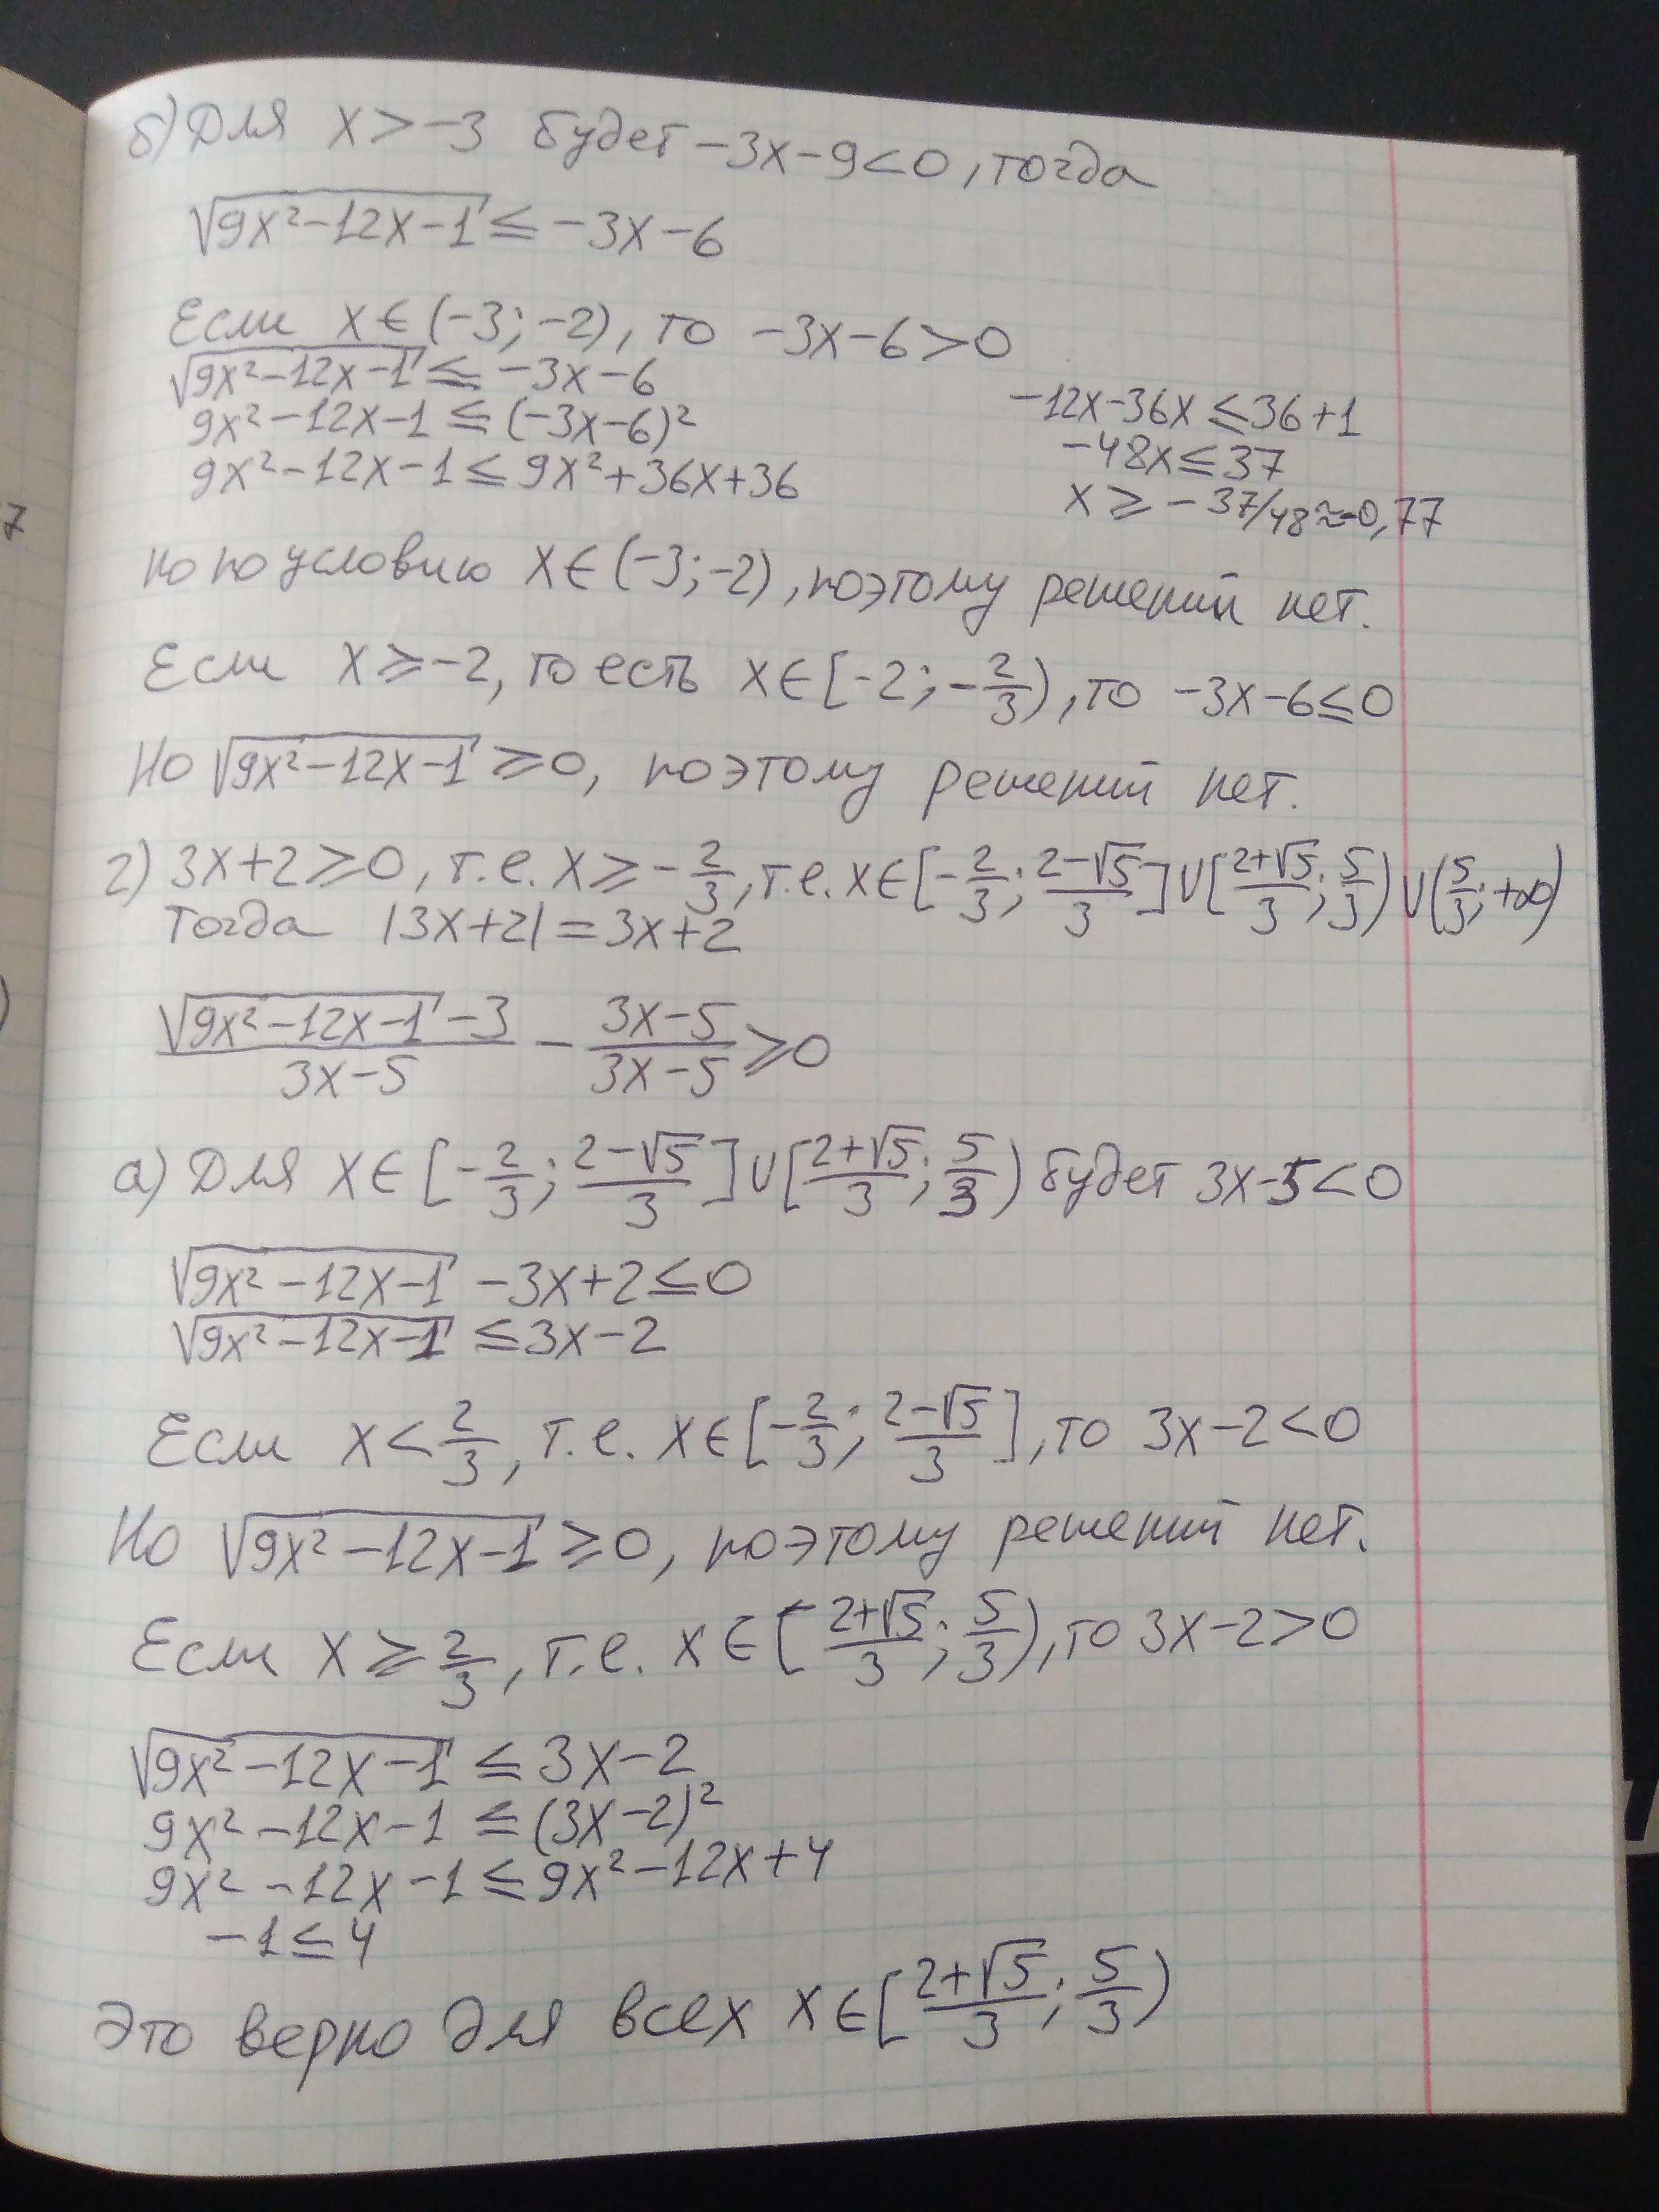 б) Для x > −3 будет −3x−9<0, тогда
√(9x²−12x−1) ≤ −3x−6
Если x ∈ (−3; −2), то −3x−6>0
√(9x²−12x−1) ≤ −3x−6
9x²−12x−1 ≤ (−3x−6)²
9x²−12x−1 ≤ 9x²+36x+36
−12x−36x ≤ 36+1
−48x ≤ 37
x ≥ −37/48 ≈ −0,77
Но по условию x ∈ (−3; −2), поэтому решений нет.
Если x ≥ −2, то есть x ∈ [−2; −2/3), то −3x−6 ≤ 0
Но √(9x²−12x−1) ≥ 0, поэтому решений нет.
2) 3x+2 ≥ 0, т.е. x ≥ −2/3, т.е. x ∈ [−2/3; (2−√5)/3] ∪ [(2+√5)/3; 5/3) ∪ (5/3; +∞)
Тогда |3x+2| = 3x+2
(√(9x²−12x−1) −3)/(3x−5) − (3x−5)/(3x−5) ≥ 0
а) Для x ∈ [−2/3; (2−√5)/3] ∪ [(2+√5)/3; 5/3) будет 3x−5<0
√(9x²−12x−1) −3x+2 ≤ 0
√(9x²−12x−1) ≤ 3x−2
Если x < 2/3, т.е. x ∈ [−2/3; (2−√5)/3], то 3x−2<0
Но √(9x²−12x−1) ≥ 0, поэтому решений нет.
Если x ≥ 2/3, т.е. x ∈ [(2+√5)/3; 5/3), то 3x−2>0
√(9x²−12x−1) ≤ 3x−2
9x²−12x−1 ≤ (3x−2)²
9x²−12x−1 ≤ 9x²−12x+4
−1 ≤ 4
Это верно для всех x ∈ [(2+√5)/3; 5/3)